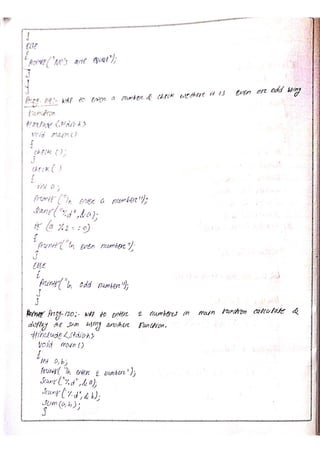 }
else
{
printf("No's are equal");
}
}
}
Prog. 119:- WAP to enter a number & check whether it is even or odd using
function
#include <stdio.h>
void main()
{
check ();
}
check ( )
{
int a;
printf ("\n enter a number");
scanf ("%d", &a);
if (a %2 == 0)
{
printf("\n even number");
}
else
{
printf("\n odd number");
}
}
Prog. 120:- WAP to enter 2 numbers in main function calculate &
display the sum using another function.
#include <stdio.h>
void main ()
{
int a, b;
printf("\n enter 2 numbers");
scanf ("%d", &a);
scanf ("%d", &b);
sum (a, b);
}